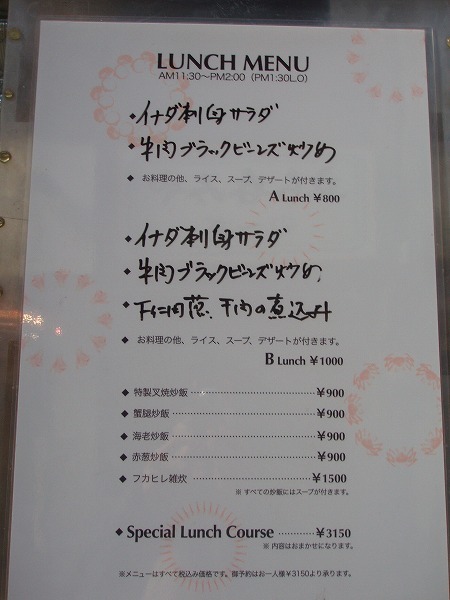 LUNCH MENU
AM11:30〜PM2:00（PM1:30L.O）
◆イナダ刺身サラダ
◆牛肉ブラックビーンズ炒め
◆ お料理の他、ライス、スープ、デザートが付きます。
A Lunch ¥800
◆イナダ刺身サラダ
◆牛肉ブラックビーンズ炒め
◆下仁田葱、干肉の煮込み
◆ お料理の他、ライス、スープ、デザートが付きます。
B Lunch ¥1000
◆ 特製叉焼炒飯 ¥900
◆ 蟹腿炒飯 ¥900
◆ 海老炒飯 ¥900
◆ 赤葱炒飯 ¥900
◆ フカヒレ雑炊 ¥1500
※ すべての炒飯にはスープが付きます。
◆ Special Lunch Course ¥3150
※ 内容はおまかせになります。
※メニューはすべて税込み価格です。御予約はお一人様¥3150より承ります。